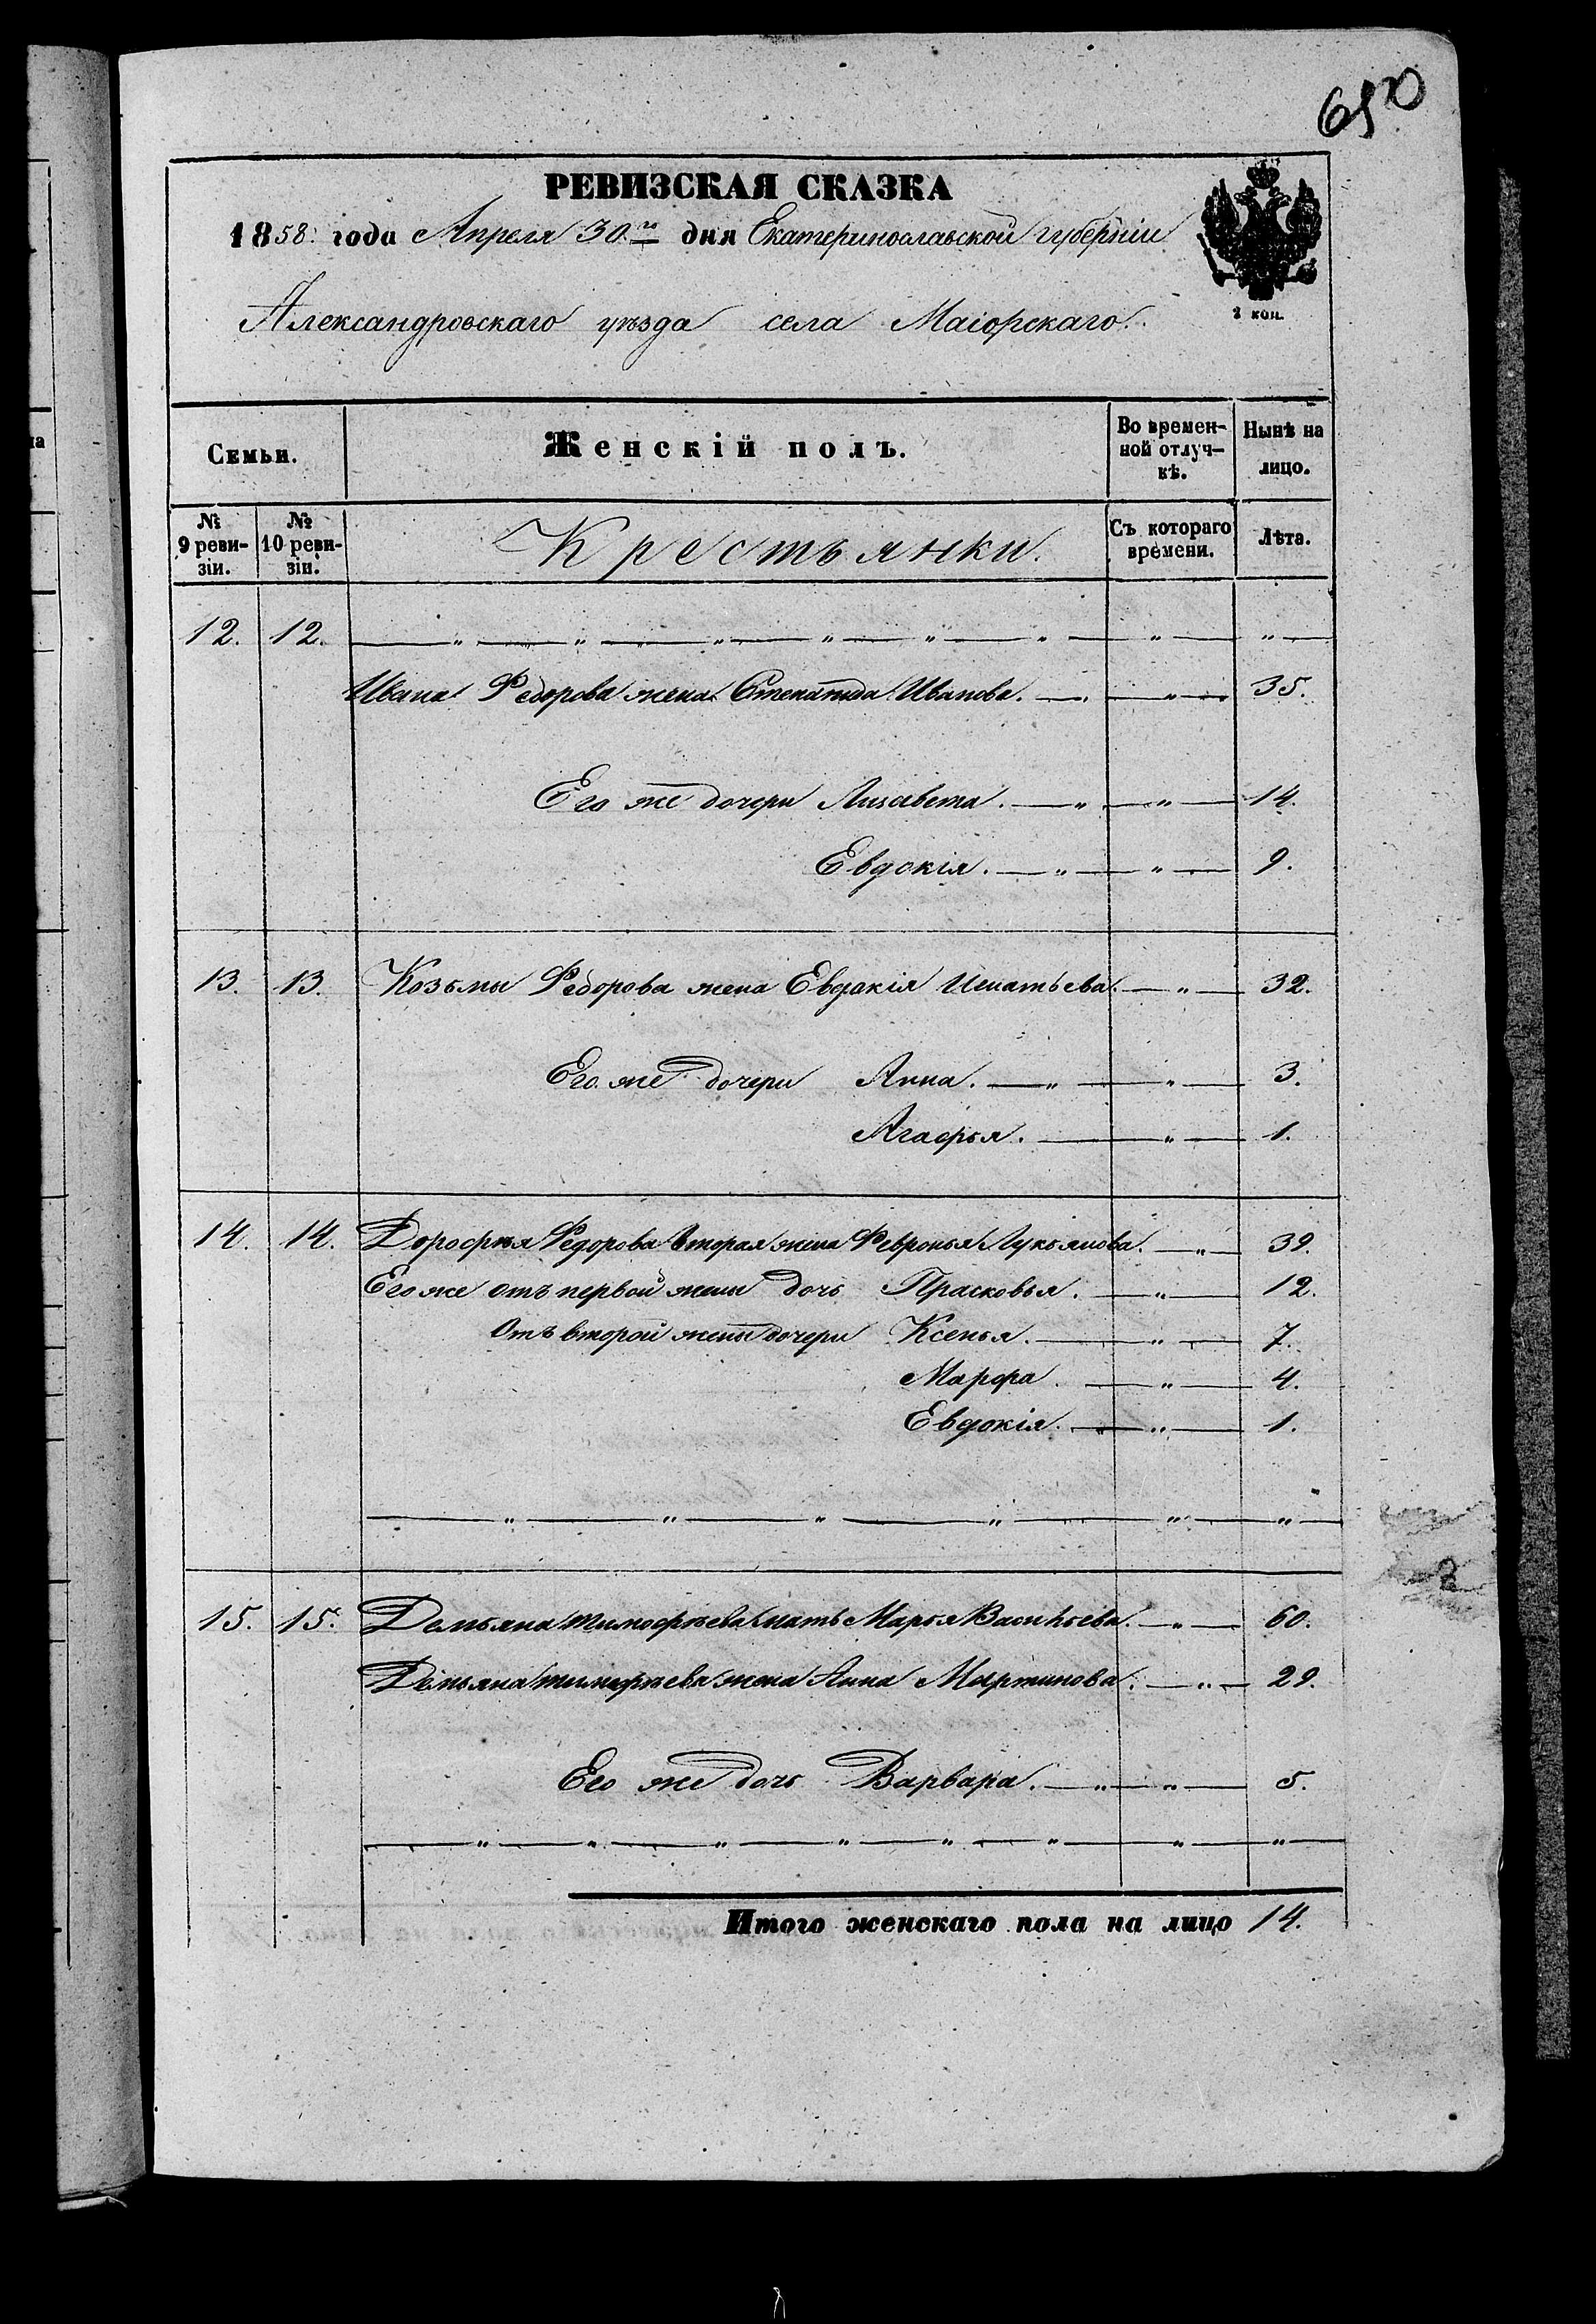 650
РЕВИЗСКАЯ СКАЗКА
1858. года Апреля 30го дня Екатеринославской губерніи
Александровскаго уѣзда села Маіорскаго.
2 коп.
Семьи.
Женскій полъ.
Во времен-
ной отлуч-
кѣ.
Нынѣ на
лицо.
№
9 реви-
зіи.
№
10 реви-
зіи.
Крестьянки.
Съ котораго
времени.
Лѣта.
12. 12. — „ — „ — „ — „ — „ — „ — „ — „ —
Ивана Федорова жена Степанида Иванова. — „ — „ — 35.
Его же дочери Лизавета. — „ — „ — 14.
Евдокія. — „ — „ — 9.
13. 13. Козьмы Федорова жена Евдокія Игнатьева. — „ — 32.
Его же дочери Анна. — „ — „ — 3.
Агафья. — „ — 1.
14. 14. Дорофея Федорова вторая жена Февронья Лукьянова. — „ — 39.
Его же отъ первой жены дочь Прасковья. — „ — 12.
Отъ второй жены дочери Ксенья. — „ — 7.
Марфа. — „ — 4.
Евдокія. — „ — 1.
— „ — „ — „ — „ — „ — „ —
15. 15. Демьяна Тимофѣева мать Марья Васильева. — „ — 60.
Демьяна Тимофѣева жена Анна Мартинова. — „ — 29.
Его же дочь Варвара. — „ — „ — 5.
— „ — „ — „ — „ — „ — „ — „ — „ —
Итого женскаго пола на лицо 14.